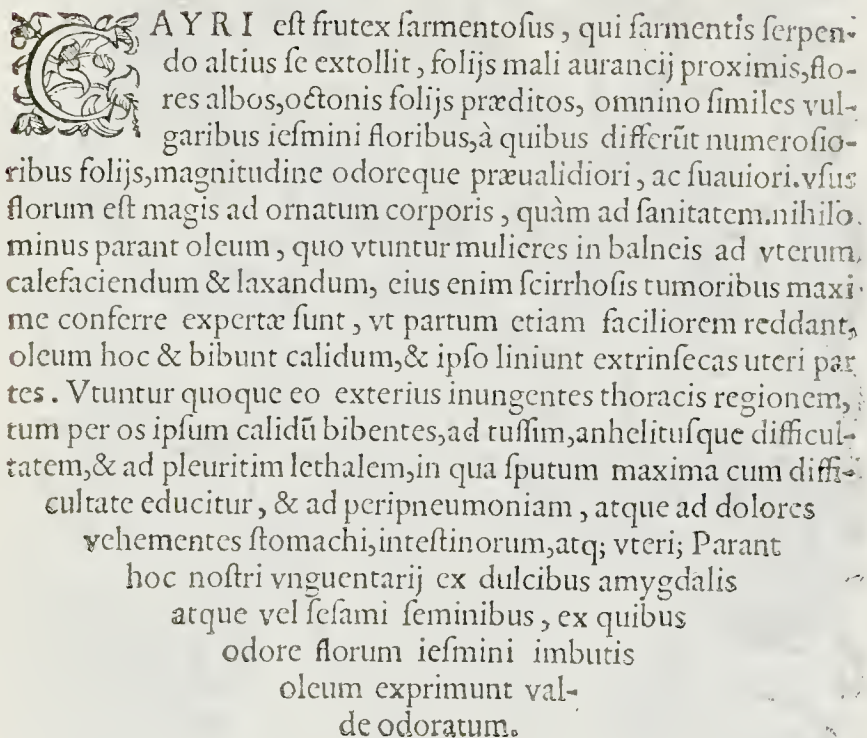 CAYRI eſt frutex ſarmentoſus, qui ſarmentis ſerpen-
do altius ſe extollit, folijs mali aurancij proximis, flo-
res albos, octonis folijs præditos, omnino ſimiles vul-
garibus ieſmini floribus, à quibus differūt numeroſio-
ribus folijs, magnitudine odoreque præualidiori, ac ſuauiori. vſus
florum eſt magis ad ornatum corporis, quàm ad ſanitatem. nihilo
minus parant oleum, quo vtuntur mulieres in balneis ad vterum
calefaciendum & laxandum, eius enim ſcirrhoſis tumoribus maxi-
me conferre expertæ ſunt, vt partum etiam faciliorem reddant,
oleum hoc & bibunt calidum, & ipſo liniunt extrinſecas uteri par
tes. Vtuntur quoque eo exterius inungentes thoracis regionem,
tum per os ipſum calidū bibentes, ad tuſſim, anhelituſque difficul-
tatem, & ad pleuritim lethalem, in qua ſputum maxima cum diffi-
cultate educitur, & ad peripneumoniam, atque ad dolores
vehementes ſtomachi, inteſtinorum, atq; vteri; Parant
hoc noſtri vnguentarij ex dulcibus amygdalis
atque vel ſeſami ſeminibus, ex quibus
odore florum ieſmini imbutis
oleum exprimunt val-
de odoratum.